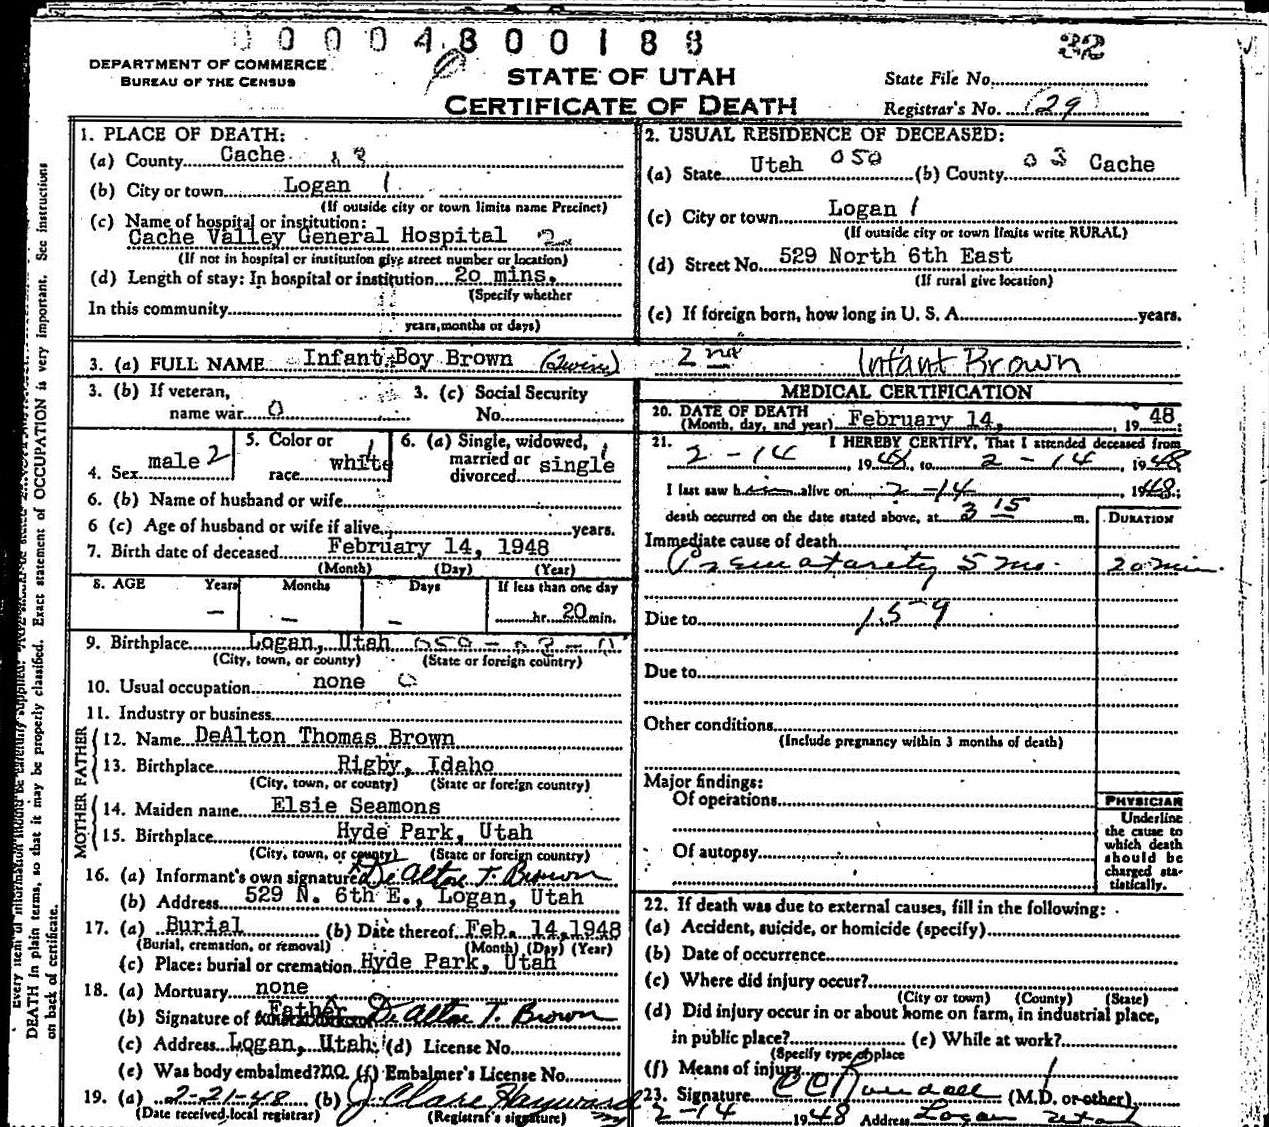 00004800188
DEPARTMENT OF COMMERCE
BUREAU OF THE CENSUS
STATE OF UTAH
CERTIFICATE OF DEATH
State File No.
Registrar's No. 29
1. PLACE OF DEATH:
(a) County Cache
(b) City or town Logan 1
(If outside city or town limits name Precinct)
(c) Name of hospital or institution:
Cache Valley General Hospital 2
(If not in hospital or institution give street number or location)
(d) Length of stay: In hospital or institution 20 mins.
(Specify whether
In this community
years, months or days)
2. USUAL RESIDENCE OF DECEASED:
(a) State Utah 050 (b) County 03 Cache
(c) City or town Logan 1
(If outside city or town limits write RURAL)
(d) Street No. 529 North 6th East
(If rural give location)
(e) If foreign born, how long in U. S. A. years.
3. (a) FULL NAME Infant Boy Brown (Twins) 2nd Infant Brown
3. (b) If veteran,
name war 0
3. (c) Social Security
No.
4. Sex male 2
5. Color or
race white 1
6. (a) Single, widowed,
married or
divorced single 1
6. (b) Name of husband or wife
6 (c) Age of husband or wife if alive years.
7. Birth date of deceased February 14, 1948
(Month) (Day) (Year)
8. AGE Years Months Days If less than one day
— — — hr. 20 min.
9. Birthplace Logan, Utah
(City, town, or county) (State or foreign country)
10. Usual occupation none 0
11. Industry or business
FATHER
12. Name DeAlton Thomas Brown
13. Birthplace Rigby, Idaho
(City, town, or county) (State or foreign country)
MOTHER
14. Maiden name Elsie Seamons
15. Birthplace Hyde Park, Utah
(City, town, or county) (State or foreign country)
16. (a) Informant's own signature De Alton T. Brown
(b) Address 529 N. 6th E., Logan, Utah
17. (a) Burial (b) Date thereof Feb. 14, 1948
(Burial, cremation, or removal) (Month) (Day) (Year)
(c) Place: burial or cremation Hyde Park, Utah
18. (a) Mortuary none
(b) Signature of Father De Alton T. Brown
(c) Address Logan, Utah. (d) License No.
(e) Was body embalmed? no. (f) Embalmer's License No.
19. (a) 2-21-48 (b) J. Clare Hayward
(Date received local registrar) (Registrar's signature)
MEDICAL CERTIFICATION
20. DATE OF DEATH
(Month, day, and year) February 14, 1948
21. I HEREBY CERTIFY, That I attended deceased from
2-14, 1948, to 2-14, 1948
I last saw him alive on 2-14 1948;
death occurred on the date stated above, at 3 15 m.
DURATION
Immediate cause of death
Prematurety 5 mo. 20 min.
Due to 159
Due to
Other conditions
(Include pregnancy within 3 months of death)
Major findings:
Of operations
Of autopsy
PHYSICIAN
Underline
the cause to
which death
should be
charged sta-
tistically.
22. If death was due to external causes, fill in the following:
(a) Accident, suicide, or homicide (specify)
(b) Date of occurrence
(c) Where did injury occur?
(City or town) (County) (State)
(d) Did injury occur in or about home on farm, in industrial place,
in public place? (e) While at work?
(Specify type of place
(f) Means of injury
23. Signature C C Randall (M.D. or other)
2-14 1948 Address Logan Utah
DEATH in plain terms, so that it may be properly classified. Exact statement of OCCUPATION is very important. See instructions
on back of certificate.